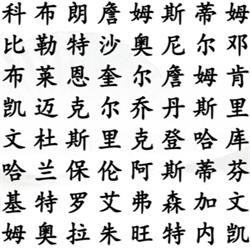 科布朗詹姆斯蒂姆
比勒特沙奥尼尔邓
布莱恩奎尔詹姆肯
凯迈克尔乔丹斯里
文杜斯里克登哈库
哈兰保伦阿斯蒂芬
基特罗艾弗森加文
姆奥拉朱旺特内凯